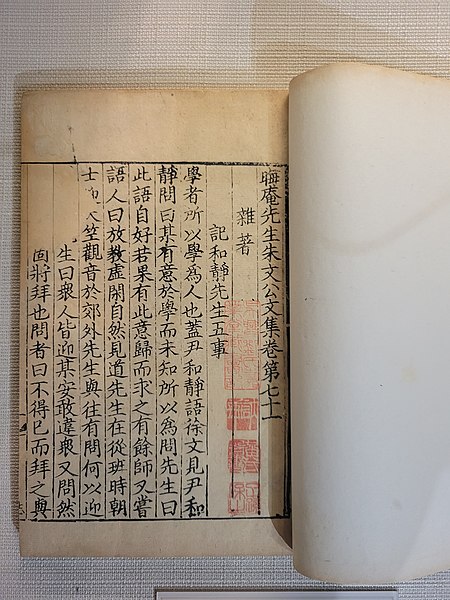 晦庵先生朱文公文集卷第七十一
雜著
記和靜先生五事
學者所以學為人也蓋尹和靜語徐文見尹和
靜問曰某有意於學而未知所以為問先生曰
此語自好若果有此意歸而求之有餘師又嘗
語人曰放教虛閑自然見道先生在從班時朝
士天竺觀音於郊外先生與往有問何以迎
生曰衆人皆迎某安敢違衆又問然
固將拜也問者曰不得已而拜之與